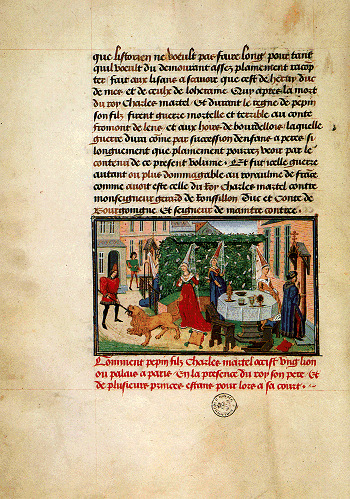 que listorien ne voeult pas faire long pour tant
quil voeult du demourant assez plainement racop
ter fait aux lisans a scavoir que cest de heruy duc
de mes et de ceulx de loheraine Qui apres la mort
du roy Charles martel Et durant le regne de pepin
son filz firent guerre melleure et terrible au conte
fromont de lens et aux hoirs de bourdellois laquelle
guerre dura come par succession densans a peres si
longuement que plainement pourrez veoir par le
contenu de ce present volume Et fut celle guerre
autant ou plus dommagable au royaulme de frace
comme avoit este celle du Roy Charles martel contre
monseigneur gerard de Roussillon Duc et Conte de
Bourgoingne Et seigneur de mainte contree
Comment pepin filz Charles martel occist Ung lion
ou palais a paris En la presence du roy son pere Et
de plusieurs princes estans pour lors a sa court